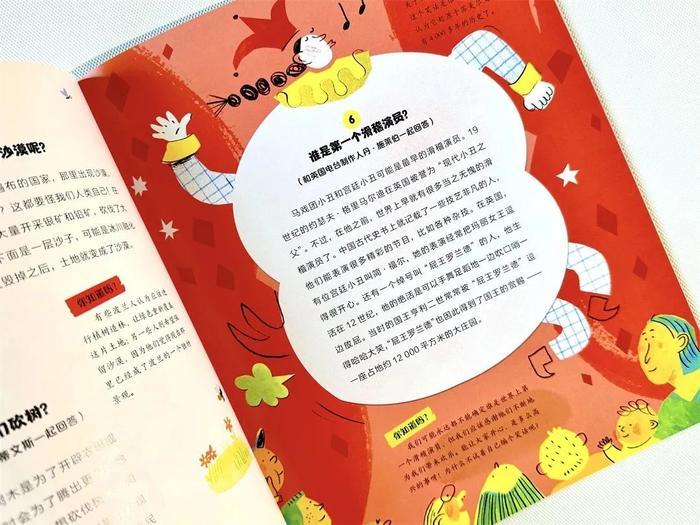 沙漠呢?
遍布的国家,那里出现沙漠,
?这都要怪我们人类自己!在
大量开采银矿和铅矿,砍伐了大
下面是一层沙子,可能是冰川退化
毁掉之后,土地就变成了沙漠。
你知道吗?
有些波兰人认为应该进
行植树造林,让绿色重新覆盖
这片土地;另一些人则希望保
留沙漠,因为他们觉得我那
里已经成了波兰的一个独特
景观。
们砍树?
蒂文斯一起回答)
树木是为了开辟农田或
会为了腾出更
想砍伐
民
这个笑话是
认为它起源于
有4000多年的历史了。
6
谁是第一个滑稽演员?
(和英国电台制作人丹·施莱伯一起回答)
马戏团小丑和宫廷小丑可能是最早的滑稽演员。19
世纪的约瑟夫·格里马尔迪在英国被誉为“现代小丑之
父”。不过,在他之前,世界上早就有很多当之无愧的滑
稽演员了。中国古代史书上就记载了一些技艺非凡的人,
他们能表演很多精彩的节目,比如各种杂技。在英国,
有位宫廷小丑叫简·福尔,她的表演经常把玛丽女王逗
得很开心。还有一个绰号叫“屁王罗兰德”的人,他生
活在12世纪,他的绝活是可以手舞足蹈地一边吹口哨一
边放屁。当时的国王亨利二世常常被“屁王罗兰德”逗
得哈哈大笑,“屁王罗兰德”也因此得到了国王的赏赐——
一座占地约12 000平方米的大庄园。
你知道吗?
我们可能永远都不能确定谁是世界上第
一个滑稽演员,但我们应该感谢他们不断地
为我们带来欢乐。能让大家开心,是多么高
兴的事呀!为什么不试着自己编个笑话呢?